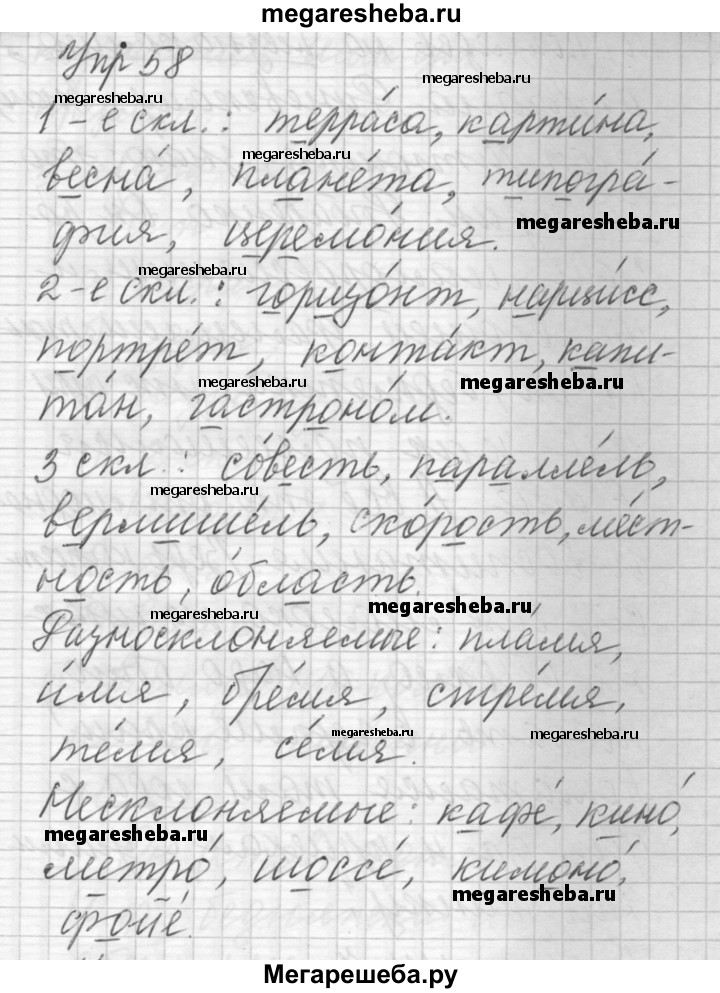 megaresheba.ru
Упр 58
megaresheba.ru
megaresheba.ru
1-е скл.: терра́са, карти́на,
megaresheba.ru
весна́, плане́та, типогра́-
megaresheba.ru
фия, церемо́ния.
megaresheba.ru
2-е скл.: горизо́нт, нарци́сс,
портре́т, конта́кт, капи-
megaresheba.ru
megaresheba.ru
та́н, гастроно́м.
3 скл.: со́весть, паралле́ль,
megaresheba.ru
вермише́ль, ско́рость, ме́ст-
ность, о́бласть.
megaresheba.ru
megaresheba.ru
Разносклоняемые: пла́мя,
и́мя, бре́мя, стре́мя,
megaresheba.ru
megaresheba.ru
те́мя, се́мя.
Несклоняемые: кафе́, кино́,
megaresheba.ru
метро́, шоссе́, кимоно́,
megaresheba.ru
фойе́.
Мегарешеба.ру